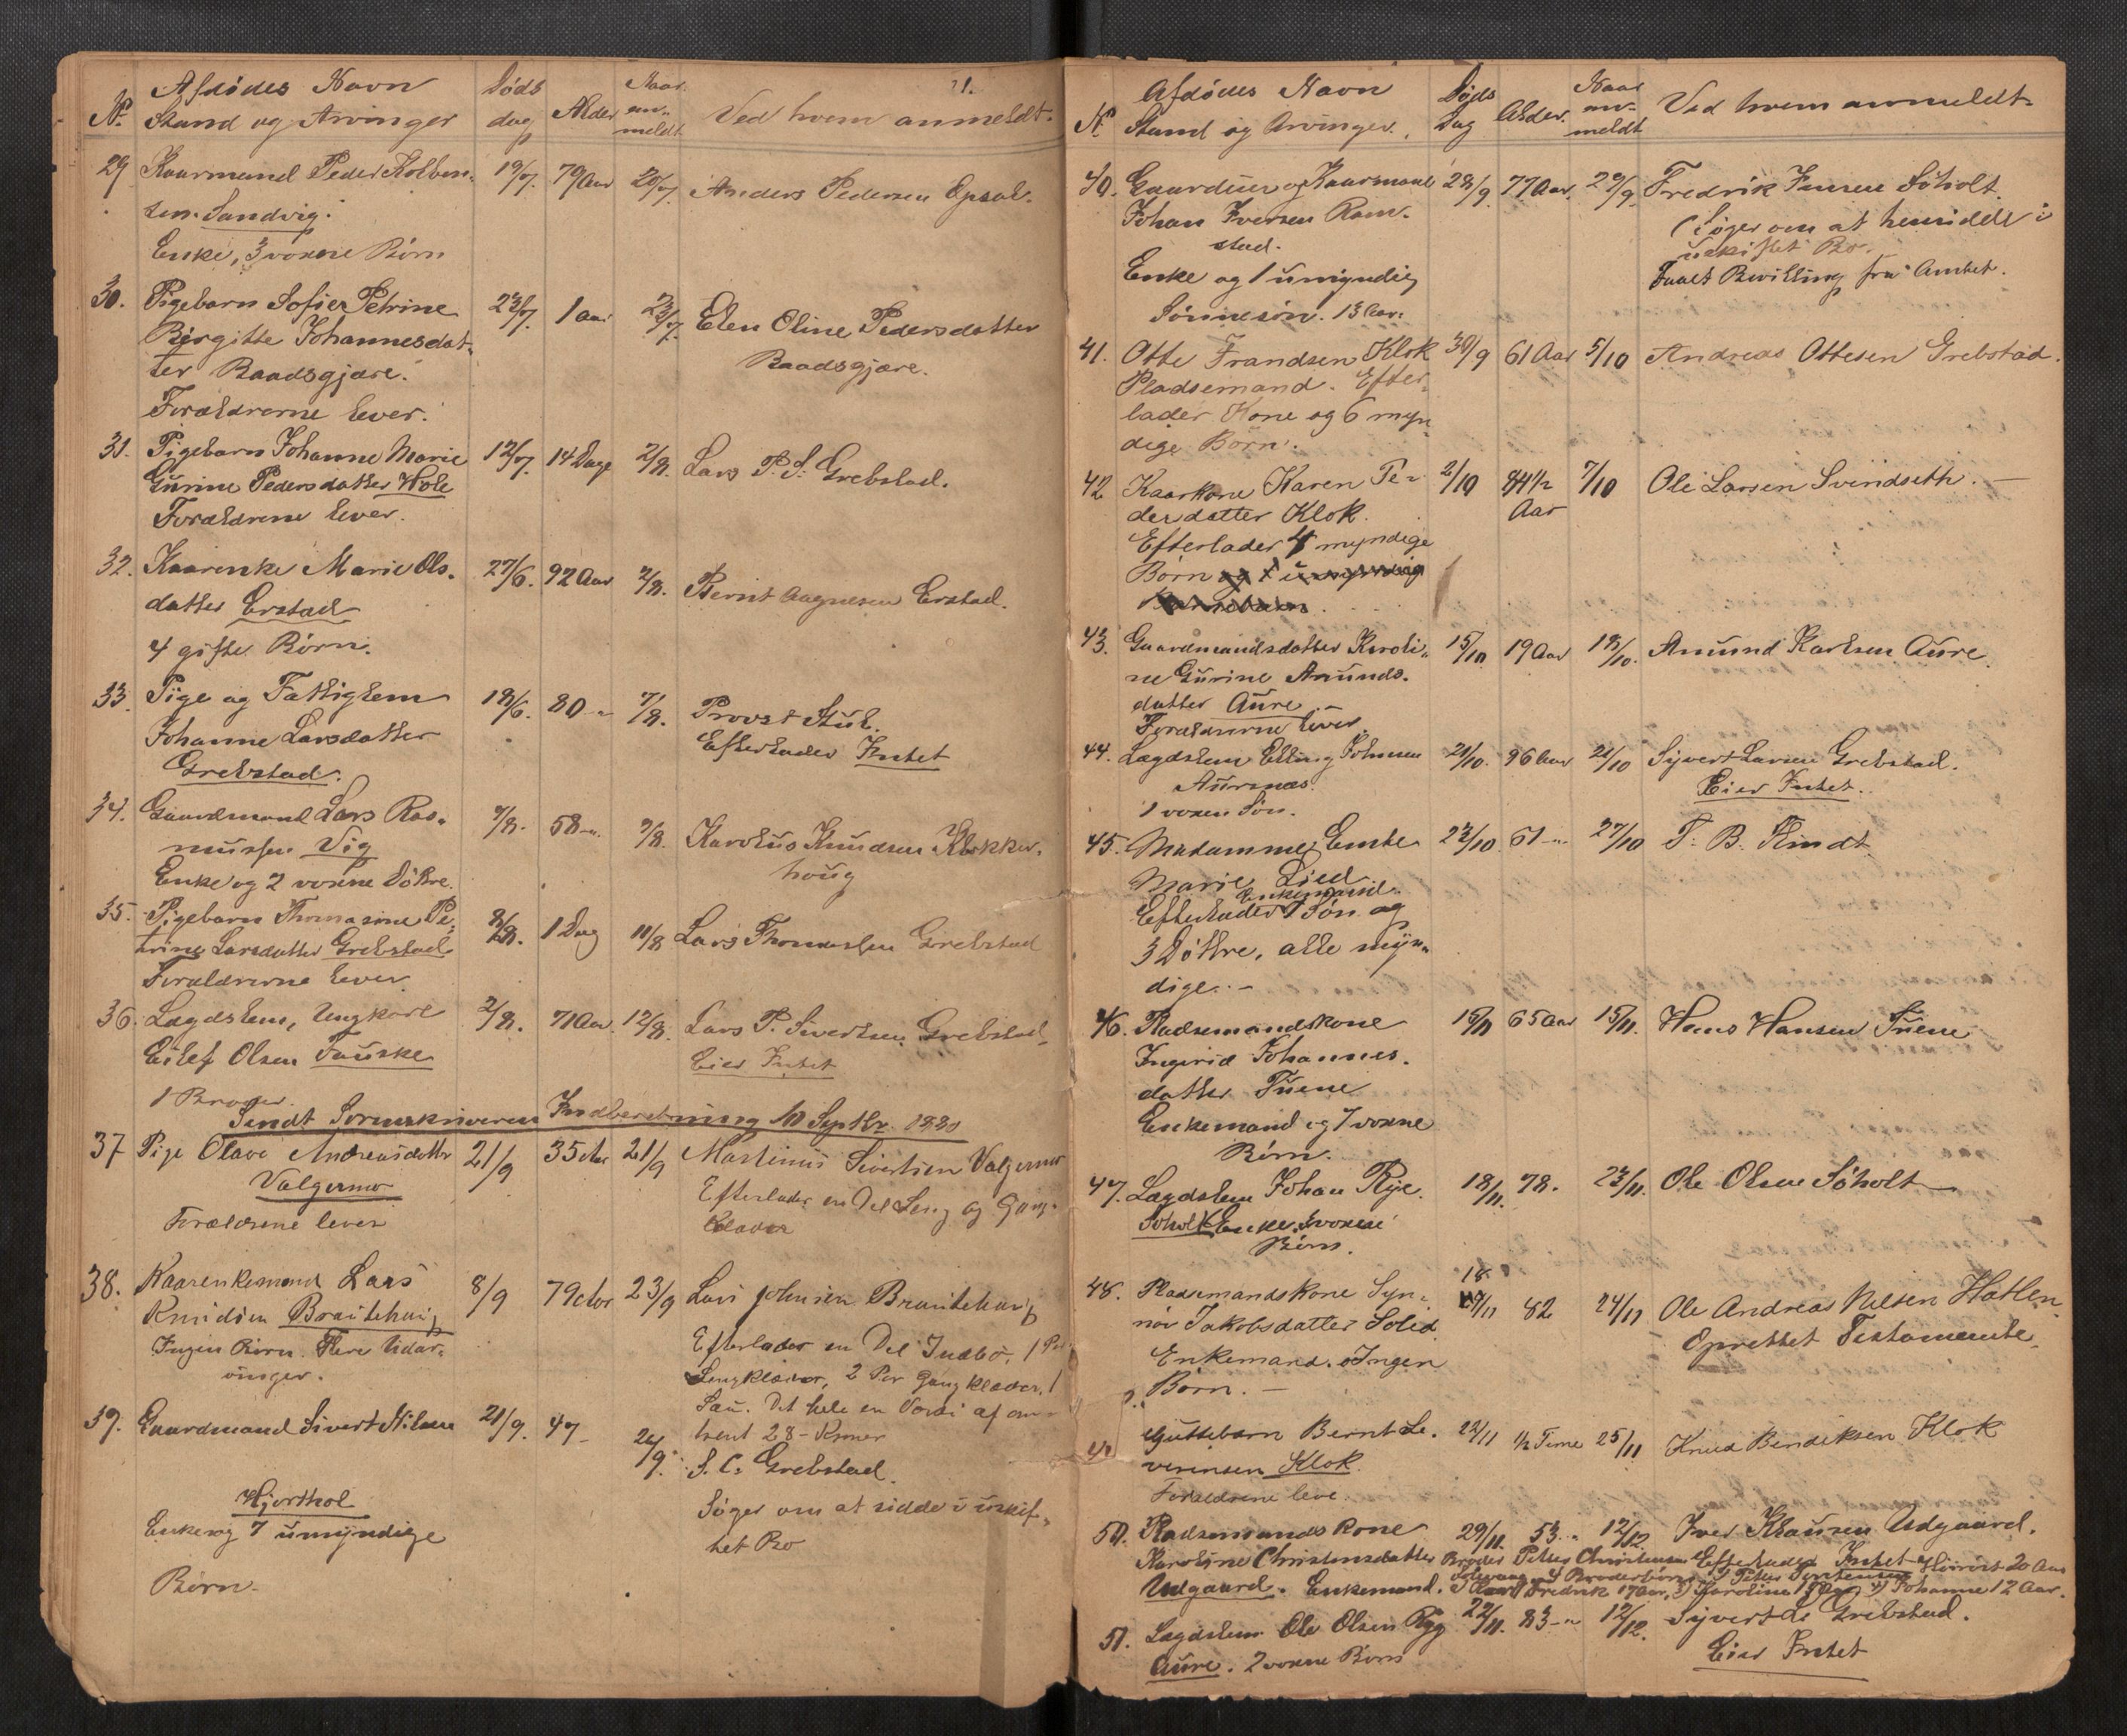 21.
No. Afdødes Navn Døds Alder Naar Ved hvem anmeldt.
Stand og Arvinger dag an-
meldt
29 Kaarmand Peder Kolben- 19/7. 79 Aar 20/7. Anders Pedersen Opsal.
sen. Sandvig.
Enke, 3 voxne Børn
30. Pigebarn Sofie Petrine 23/7. 1 aar 23/7. Elen Oline Pedersdatter
Birgitte Johannesdat- Baadsgjære.
ter Baadsgjære.
Forældrerne lever.
31. Pigebarn Johanne Marie 12/7. 14 Dage 2/8. Lars P. S. Grebstad.
Gurine Pedersdatter Hole
Forældrene lever.
32. Kaarenke Marie Ols- 27/6. 92 Aar 2/8. Bernt Aagnesen Erstad.
datter Erstad
4 gifte Børn.
33. Pige og Fattiglem 18/6. 80 -" 7/8. Provst Stub.
Johanne Larsdatter Efterlader Intet
Grebstad.
34. Gaardmand Lars Ras- 7/8. 58 -" 9/8. Karolus Knudsen Klokker-
mussen Vig houg
Enke og 2 voxne Døttre.
35. Pigebarn Thomasine Pe- 8/8. 1 Dag 11/8 Lars Thomassen Grebstad
trine Larsdatter Grebstad
Forældrerne lever
36. Lægdslem, Ungkarl 2/8. 71 Aar 12/8. Lars P. Sivertsen Grebstad
Eilef Olsen Fauske Eier Intet
1 Broder.
Sendt Sorenskriveren Indberetning 10 Septbr. 1880
37 Pige Olave Andreasdatter 21/9 35 Aar 21/9 Martinus Sivertsen Valgermo
Valgermo Efterlader en Del Seng og Gang-
Forældrene lever klæder
38. Kaarenkemand Lars 8/9 79 Aar 23/9 Lars Johnsen Brautehaug
Knudsen Brautehaug Efterlader en Del Indbo, 1 Par
Ingen Børn. Flere Udar- Sengklæder, 2 Par Gangklæder, 1
vinger. Sau. Det hele en Værdi af om-
trent 28 - Kroner
39. Gaardmand Sivert Nilsen 21/9. 47 - 24/9. S. C. Grebstad.
Hjorthol Søger om at sidde i uskif-
Enke og 7 umyndige tet Bo
Børn.
No. Afdødes Navn Døds Alder. Naar Ved hvem anmeldt
Stand og Arvinger. Dag an-
meldt
40. Gaardm. og Kaarmand 28/9. 77 Aar. 29/9. Fredrik Jensen Søholt.
Johan Iversen Ram- (Søger om at hensidde i
stad. uskiftet Bo.
Enke og 1 umyndig Faaet Bevilling fra Amtet.
Sønnesøn. 13 Aar.
41. Otte Frandsen Klok 30/9 61 Aar 5/10 Andreas Ottesen Grebstad.
Pladsemand. Efter-
lader Kone og 6 myn
dige Børn.
42 Kaarkone Karen Pe- 2/10 84 1/2 7/10 Ole Larsen Svindseth. -
dersdatter Klok. Aar
Efterlader 4 myndige
Børn og 1 umyndig
Barnebarn
43. Gaardmandsdatter Karoli- 15/10 19 Aar 18/10. Amund Karlsen Aure.
ne Gurine Amunds-
datter Aure. -
Forældrerne lever.
44. Lægdslem Elling Johnsen 21/10. 96 Aar 21/10 Syvert Larsen Grebstad.
Aursnæs. Eier Intet.
1 voxen Søn.
45. Madamme Emte 23/10. 61 -" 27/10 T. B. Flindt.
Marie Lied
Enkemand.
Efterlader 1 Søn og
3 Døttre, alle myn-
dige. -
46. Pladsemandskone 15/11 65 Aar 15/11. Hans Hansen Tuene
Ingerid Johannes-
datter Tuene
Enkemand og 7 voxne
Børn.
47. Lægdslem Johan Rye. 18/11. 78. 23/11. Ole Olsen Søholt
Søholt Enke. voxne
Børn.
18.
48. Pladsemandskone Syn- 11 82 24/11 Ole Andreas Nelsen Hatlen
nøv Jakobsdatter Soled. Oprettet Testamente.
Enkemand. Ingen
Børn. -
Guttebarn Bernt Se- 22/11 1/2 Time 25/11 Knud Bendiksen Klok
verinsen Klok.
Forældrene leve.
50. Pladsemandskone 29/11. 53 -" 12/12. Iver Klausen Udgaard.
Karoline Christensdatter Broder Petter Christensen Efterlader Intet
Udgaard. Enkemand. Fredrik 17 Aar, 3) Karoline 4) Johanne 12 Aar.
51. Lægdslem Ole Olsen Ryg 22/11. 83 -" 12/12. Syvert L. Grebstad.
Aure. 2 voxne Børn Eier Intet